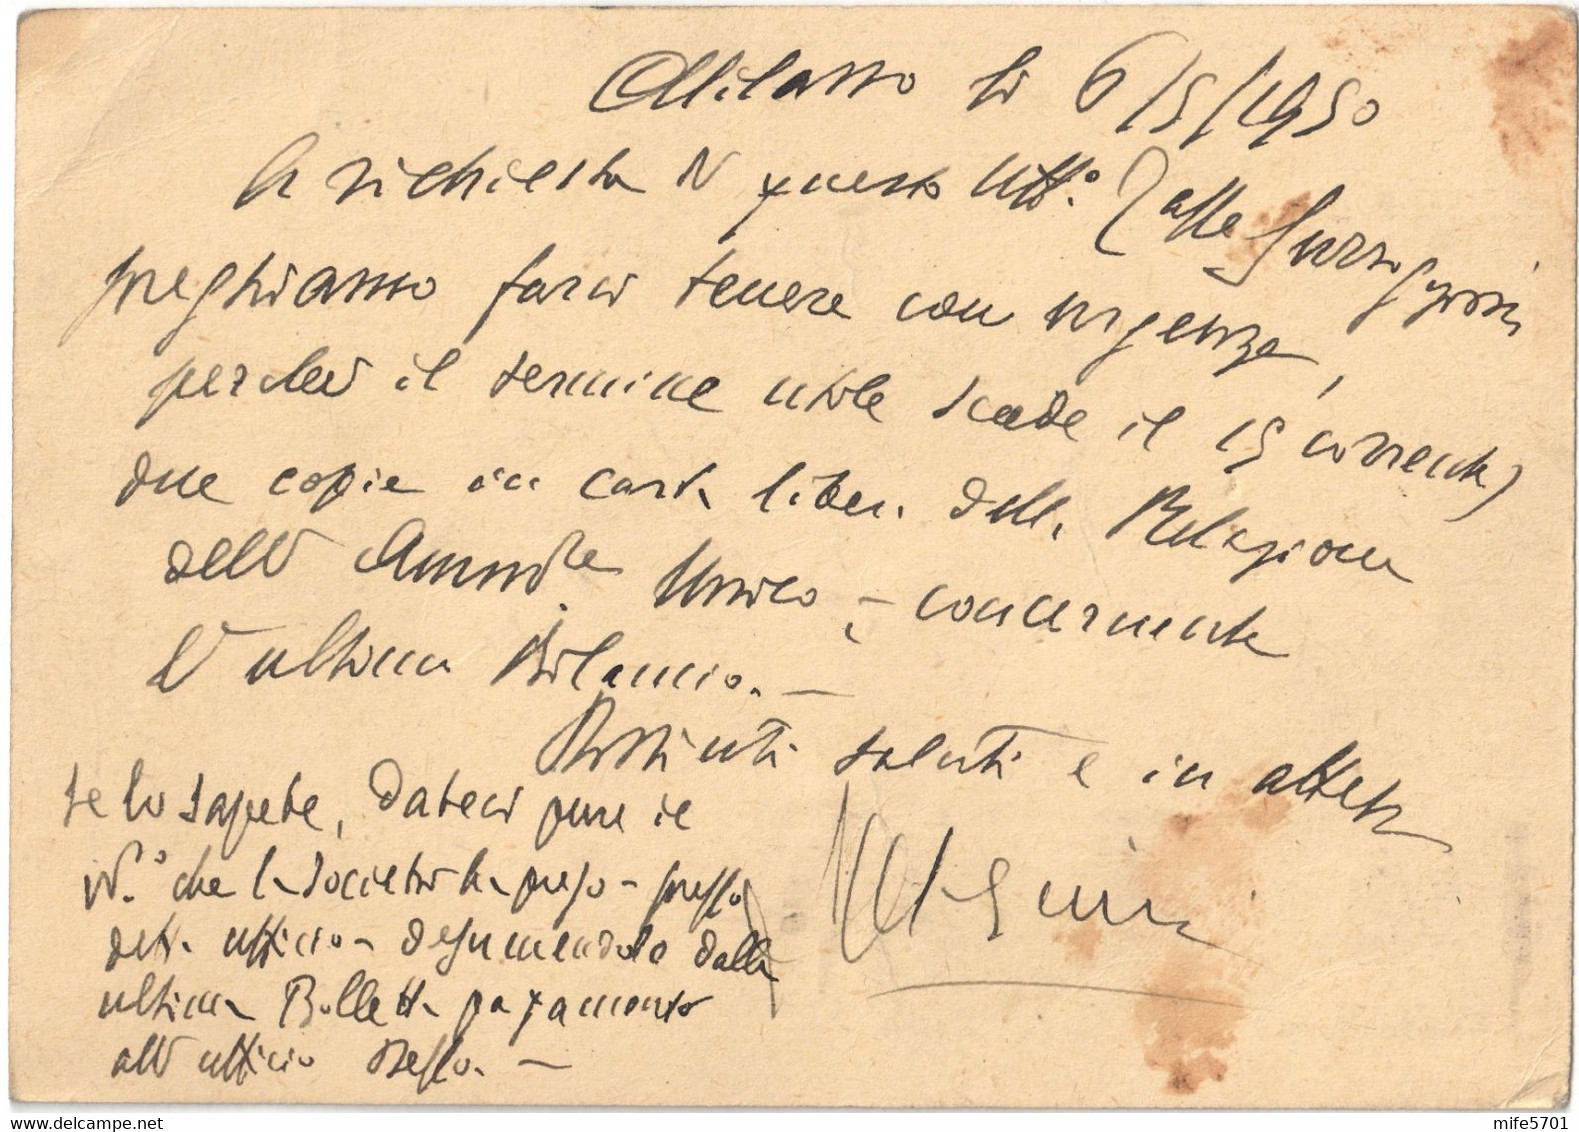 Milazzo li 6/5/1950
A richiesta di questo Uff.° Tasse Surrog
preghiamo farci tenere con urgenza,
perché il termine utile scade il 15 corrente)
due copie in carta libera della Relazione
dell' Amm.re Unico, - concernente
l'ultimo Bilancio. -
Distinti saluti e in attesa
Se lo sapete, dateci pure il
N.° che la società ha preso - presso
detto ufficio - desumendolo dalla
ultima Bolletta pagamento
all' ufficio stesso. -
mife5701
www.delcampe.net